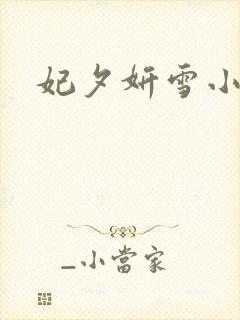 妃夕妍雪小
_小當家